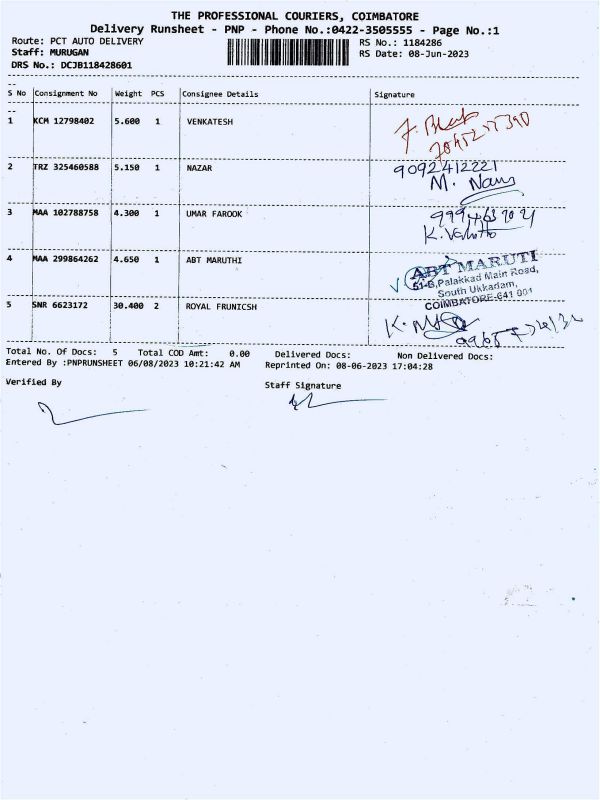 THE PROFESSIONAL COURIERS, COIMBATORE
Delivery Runsheet - PNP - Phone No.:0422-3505555 - Page No.:1
Route: PCT AUTO DELIVERY RS No.: 1184286
Staff: MURUGAN RS Date: 08-Jun-2023
DRS No.: DCJB118428601
S No Consignment No Weight PCS Consignee Details Signature
1 KCM 12798402 5.600 1 VENKATESH
2 TRZ 325460588 5.150 1 NAZAR 9092412221
M.
3 MAA 102788758 4.300 1 UMAR FAROOK
K.
4 MAA 299864262 4.650 1 ABT MARUTHI ABT MARUTI
51-B, Palakkad Main Road,
South Ukkadam,
COIMBATORE-641 001
5 SNR 6623172 30.400 2 ROYAL FRUNICSH
K.
Total No. Of Docs: 5 Total COD Amt: 0.00 Delivered Docs: Non Delivered Docs:
Entered By :PNPRUNSHEET 06/08/2023 10:21:42 AM Reprinted On: 08-06-2023 17:04:28
Verified By Staff Signature